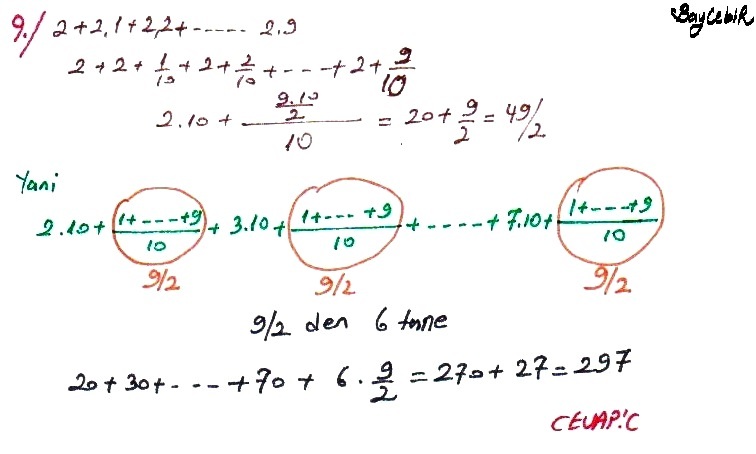 BayCebiR
9./ 2+2,1+2,2+ ----- 2.9
2+2+1/10+2+2/10+---+2+9/10
2.10+ (9.10/2)/10 = 20+9/2 = 49/2
Yani
2.10+ (1+---+9)/10 + 3.10+ (1+--- +9)/10 +----+ 7.10+ (1+---+9)/10
9/2 9/2 9/2
9/2 den 6 tane
20+30+- --- +70 + 6 . 9/2 = 270+27=297
CEVAP:C